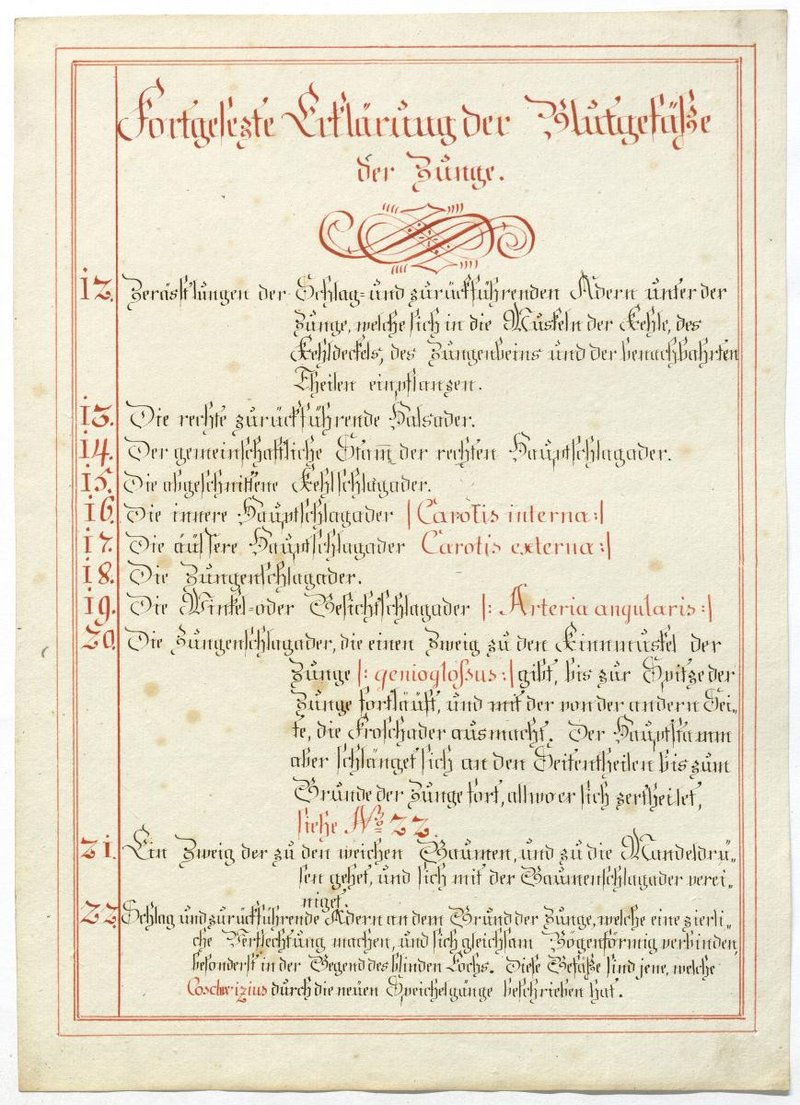 Fortgesezte Erklärung der Blutgefäße
der Zunge.
12. Zerästlungen der Schlag= und zurückführenden Adern unter der
Zunge, welche sich in die Muskeln der Kehle, des
Kehldeckels, des Zungenbeins und der benachbahrten
Theilen einpflanzen.
13. Die rechte zurückführende Halsader.
14. Der gemeinschaftliche Stam̅ der rechten Hauptschlagader.
15. Die abgeschnittene Kehlschlagader.
16. Die innere Hauptschlagader |Carotis interna:|
17. Die äussere Hauptschlagader Carotis externa:|
18. Die Zungenschlagader.
19. Die Winkel=oder Gesichtschlagader |: Arteria angularis:|
20. Die Zungenschlagader, die einen Zweig zu den Kinnmuskel der
Zunge |: genioglossus:| gibt, bis zur Spitze der
Zunge fortläuft, und mit der von der andern Sei,,
te, die Froschader ausmacht. Der Hauptstamm
aber schlänget sich an den Seitentheilen bis zum
Grunde der Zunge fort, allwo er sich zertheilet,
siehe No 22.
21. Ein Zweig der zu den weichen Gaumen, und zu die Mandeldrü,,
sen gehet, und sich mit der Gaumenschlagader verei,,
niget.
22. Schlag und zurückführende Adern an dem Grund der Zunge, welche eine zierli,,
che Verflechtung machen, und sich gleichsam Bogenförmig verbinden,
besonderst in der Gegend des blinden Lochs. Diese Gefäße sind jene, welche
Coschwizius durch die neuen Speichelgänge beschrieben hat.